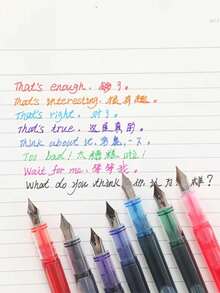 That's enough. 够了。
That's interesting. 很有趣。
That's right. 对了。
That's true. 这是真的。
Think about it. 考虑一下。
Too bad! 太糟糕啦!
Wait for me. 等等我。
What do you think? 你认为怎么样?